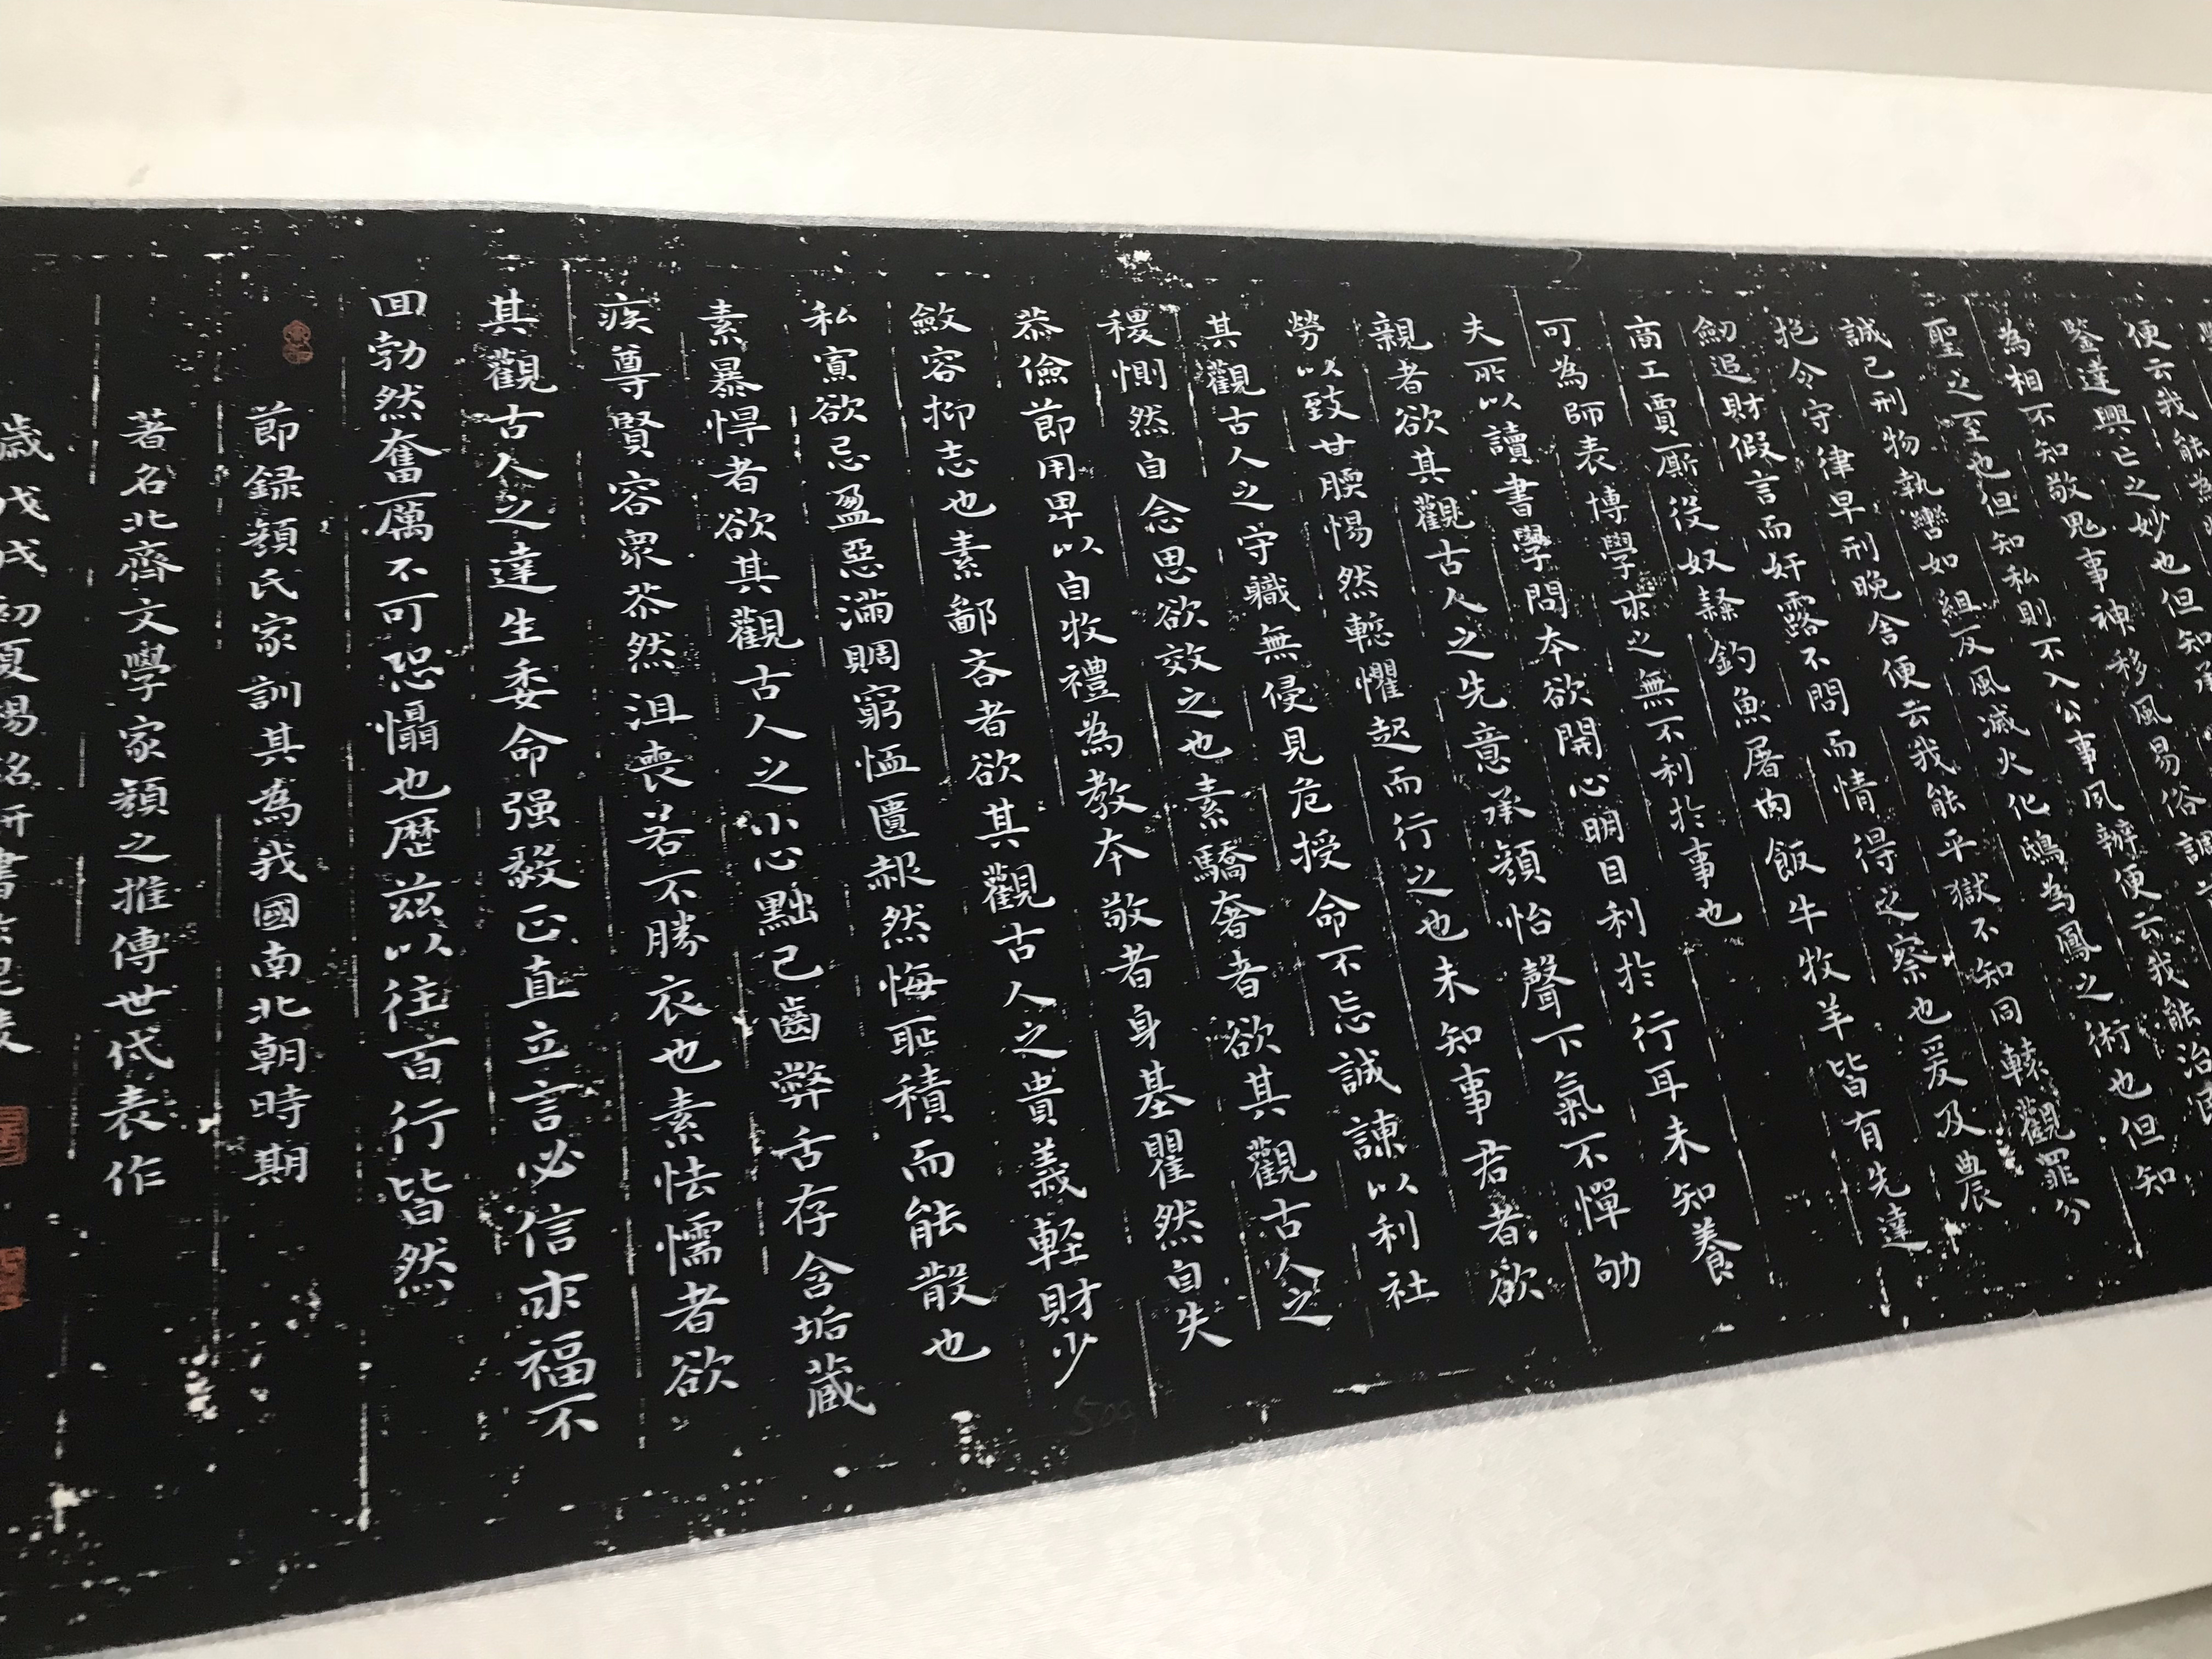 便云我能為
鑒達興亡之妙也但知承
為相不知敬鬼事神移風易俗調
聖之至也但知私則不入公事夙辦便云我能治
誠己刑物執轡如組反風滅火化鴟為鳳之術也但知
抱令守律早刑晚舍便云我能平獄不知同轅觀罪分
劒追財假言而奸露不問而情得之察也爰及農
商工賈廝役奴隸釣魚屠肉飯牛牧羊皆有先達
可為師表博學求之無不利於事也
夫所以讀書學問本欲開心明目利於行耳未知養
親者欲其觀古人之先意承顏怡聲下氣不憚劬
勞以致甘腝惕然慙懼起而行之也未知事君者欲
其觀古人之守職無侵見危授命不忘誠諫以利社
稷惻然自念思欲效之也素驕奢者欲其觀古人之
恭儉節用卑以自牧禮為教本敬者身基瞿然自失
斂容抑志也素鄙吝者欲其觀古人之貴義輕財少
私寡欲忌盈惡滿賙窮恤匱赧然悔恥積而能散也
素暴悍者欲其觀古人之小心黜己齒弊舌存含垢藏
疾尊賢容眾苶然沮喪若不勝衣也素怯懦者欲
其觀古人之達生委命强毅正直立言必信求福不
回勃然奮厲不可恐懾也歷茲以往百行皆然
節録顏氏家訓其為我國南北朝時期
著名北齊文學家顏之推傳世代表作
歲戊戌初夏楊